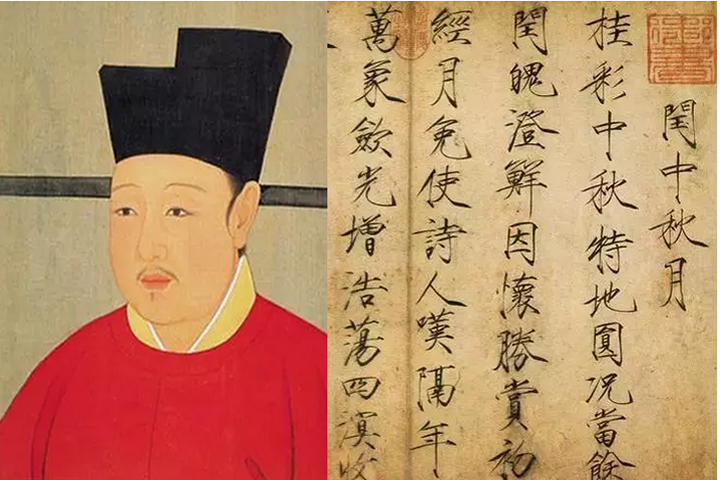 閏中秋月
桂彩中秋特地圓況當餘
閏魄澄鮮因懷勝賞初
經月免使詩人嘆隔年
萬象歛光增浩蕩四溟收